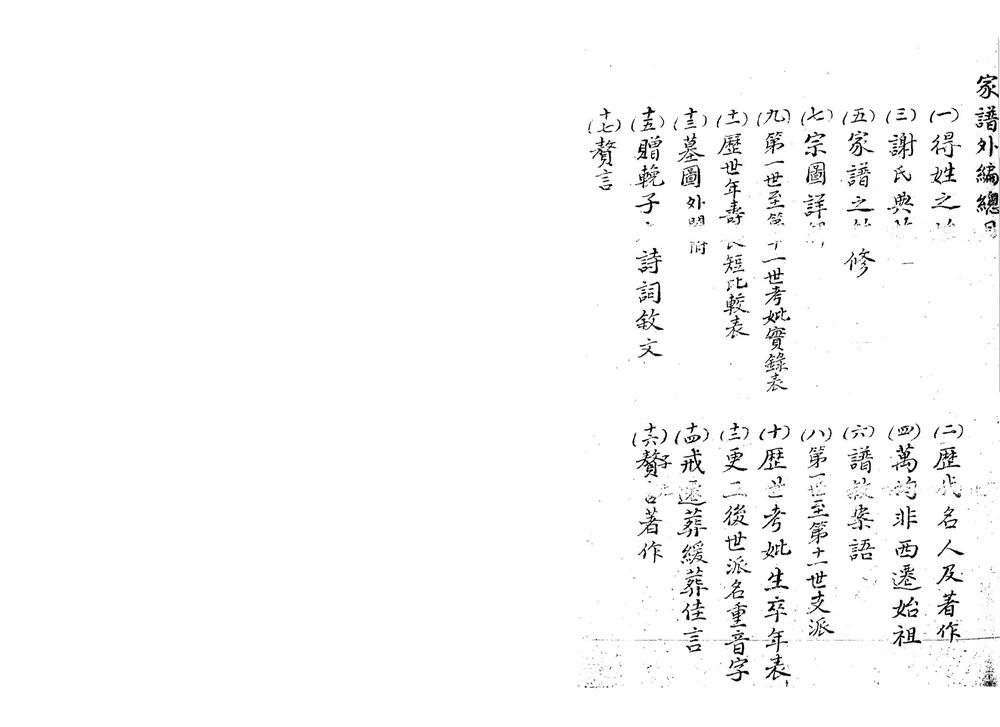 家譜外編總目
(一)得姓之
(二)歷代名人及著作
(三)謝氏典
(四)萬均非西遷始祖
(五)家譜之 修
(六)譜敘案語
(七)宗圖詳
(八)第一世至第十一世支派
(九)第一世至第十一世考妣實錄表
(十)歷世考妣生卒年表
(十一)歷世年壽長短比較表
更正後世派名重音字
(十三)墓圖外 附
(十四)戒遷葬緩葬佳言
(十五)贈輓子 詩詞敘文
(十六)贅 著作
(十七)贅言